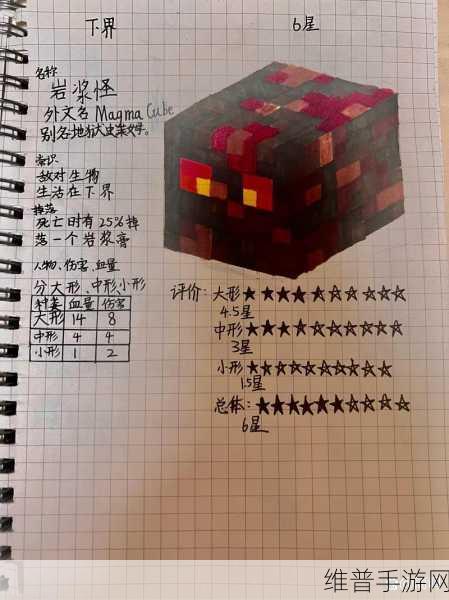 下界
6星
名称
岩浆怪
外文名 Magma Cube
别名地狱史莱姆。
常识
敌对生物
生活在下界
掉落
死亡时有25%掉
落一个岩浆膏
人物、伤害、血量
分大形、中形、小形
种类 血量 伤害
大形 14 8
中形 4 4
小形 1 2
评价：大形★★★★☆☆☆☆☆☆
4.5星
中形★★★☆☆☆☆☆☆☆
3星
小形★☆☆☆☆☆☆☆☆☆
1.5星
总体：★★★★★★☆☆☆☆
6星
维普手游网